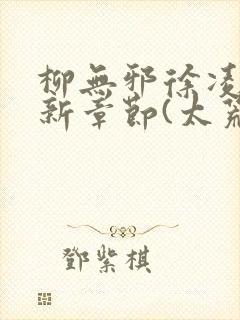 柳無邪徐凌
新章節(太荒
鄧紫棋